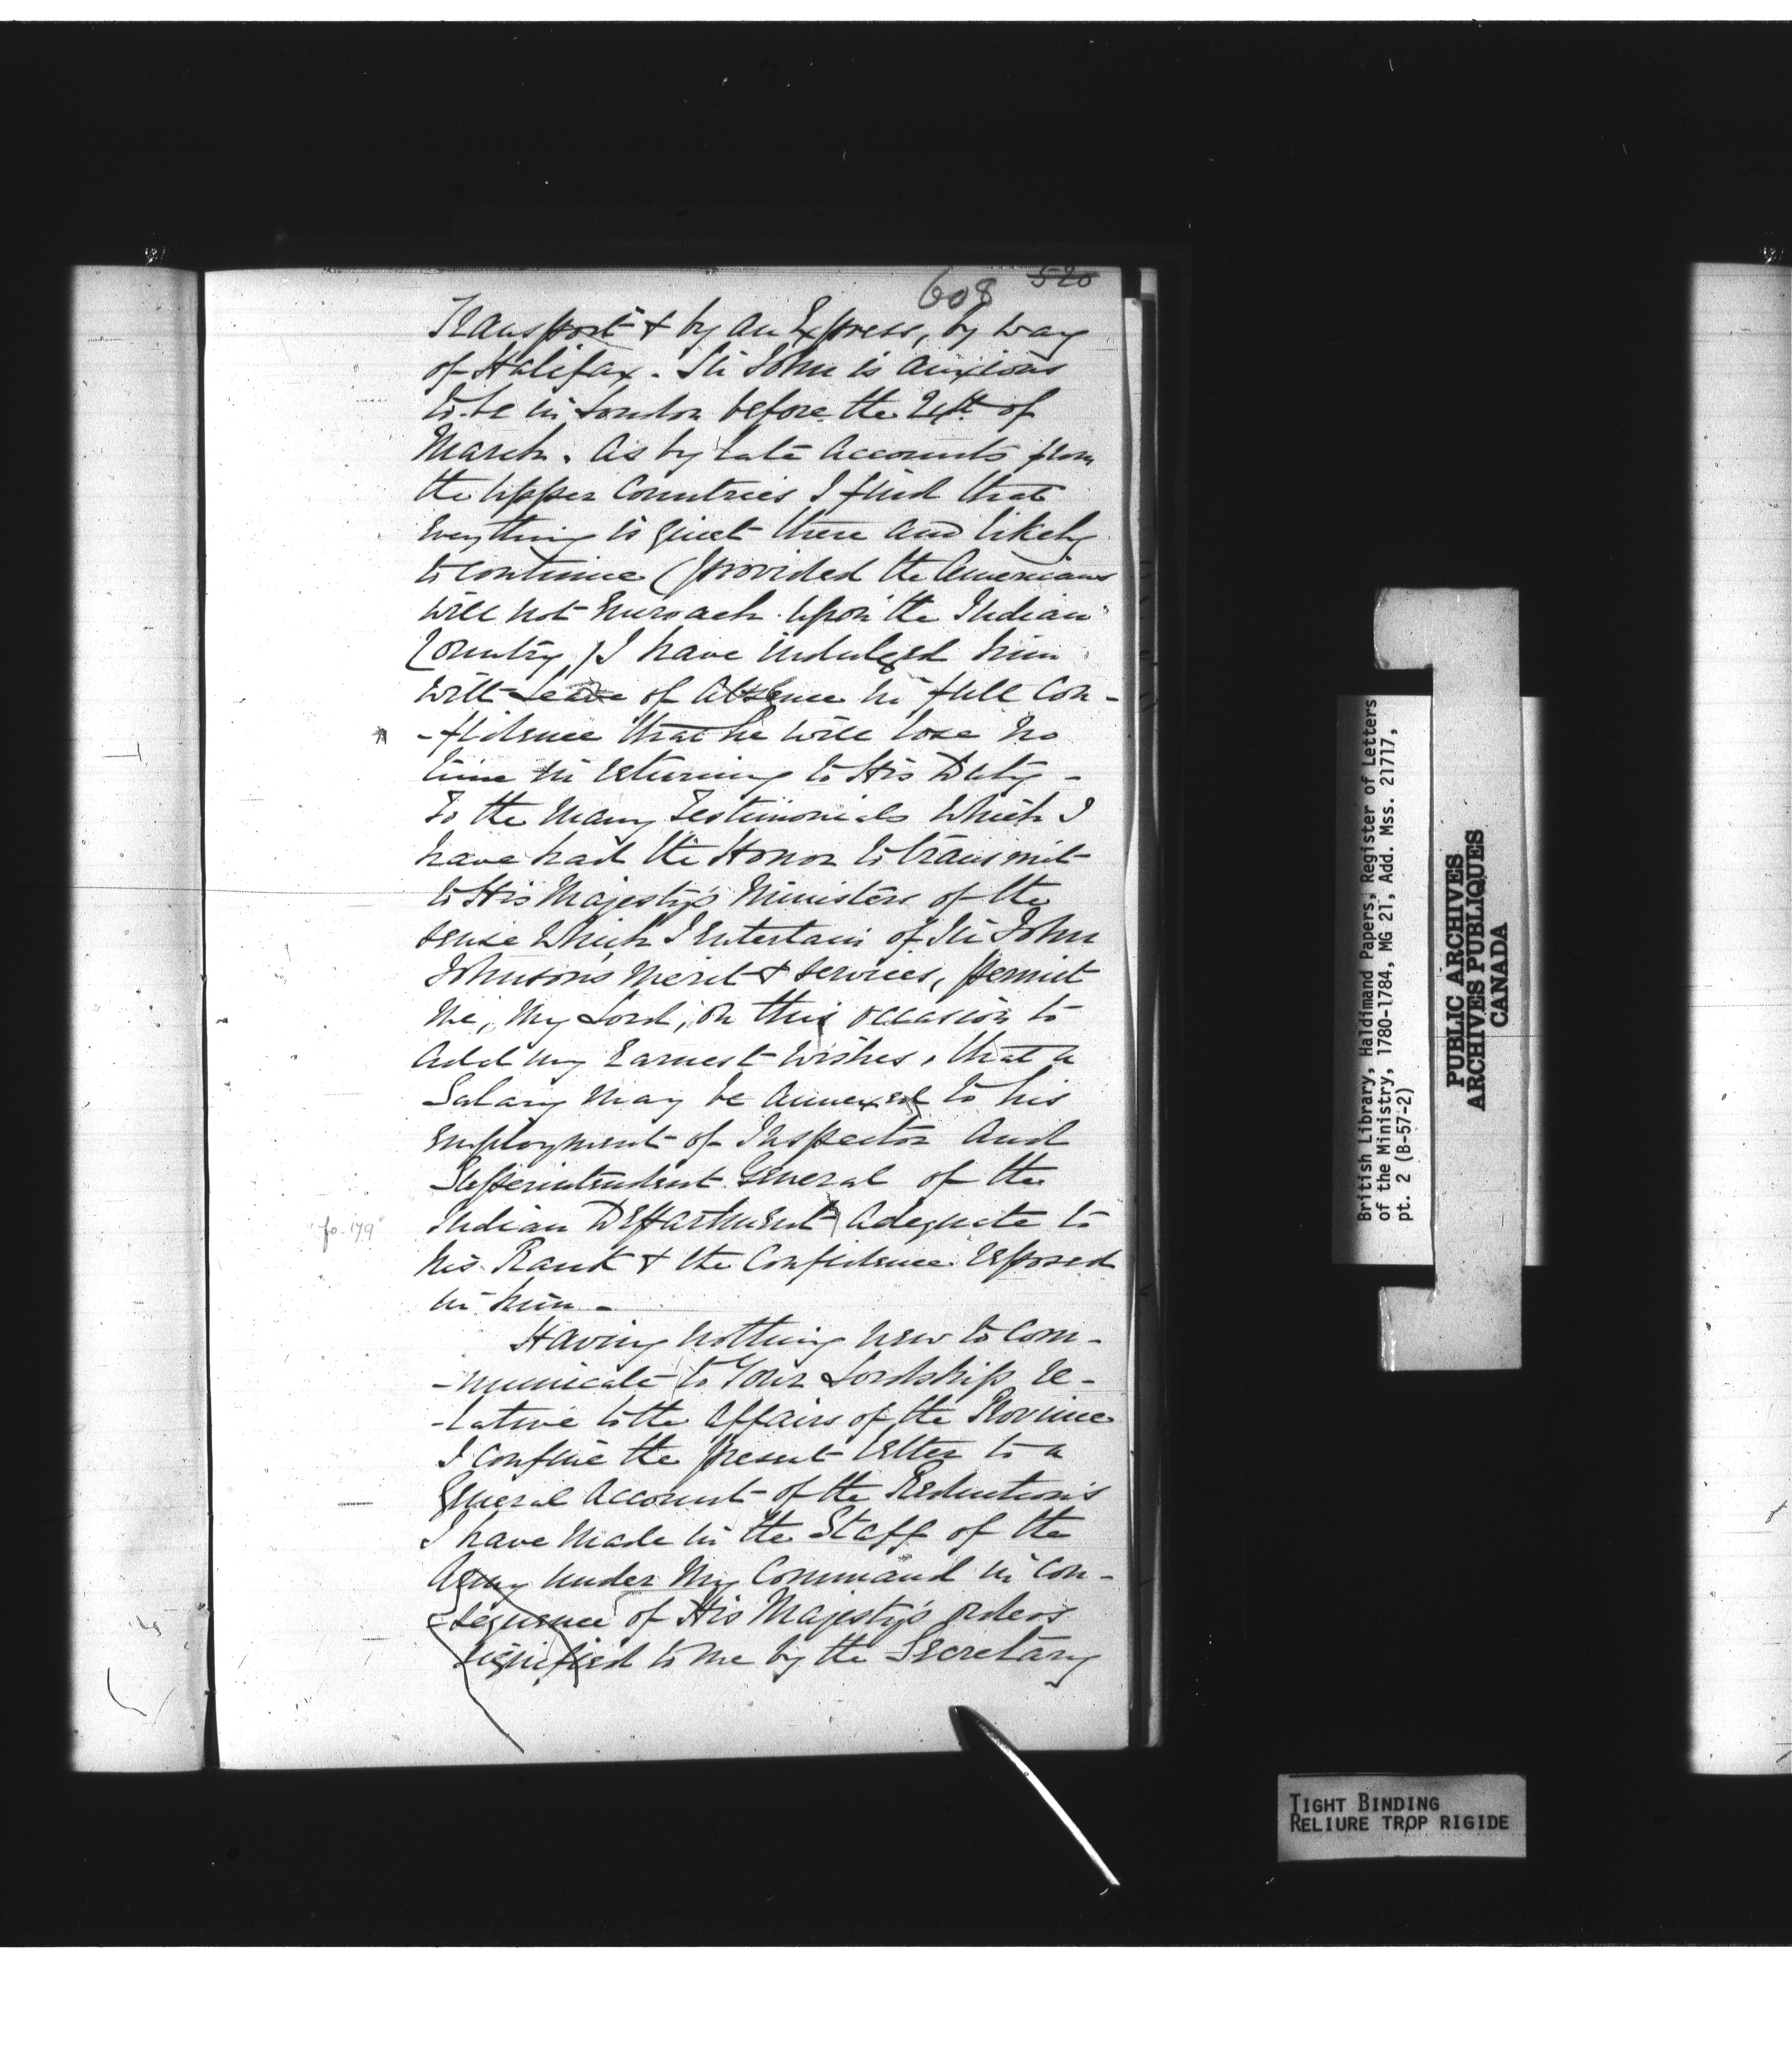 608 520
Transport & by an Express, by way
of Halifax. Sir John is anxious
to be in London before the 24th of
March. As by late Accounts from
the Upper Countries I find that
Every thing is quiet there and likely
to continue (provided the Americans
will not encroach upon the Indian
Country,) I have indulged him
with Leave of Absence in full Con-
-fidence that he will lose no
time in returning to His Duty -
To the many testimonials which I
have had the Honor to transmit
to His Majesty's Ministers of the
sense which I entertain of Sir John
Johnson's merit & services, permit
me, My Lord, on this occasion to
add my Earnest wishes, that a
Salary may be annexed to his
employment of Inspector and
Superintendent General of the
"fo. 179"
Indian Department adequate to
his Rank & the Confidence reposed
in him -
Having nothing new to com-
-municate to Your Lordship re-
-lative to the affairs of the Province
I confine the present letter to a
General Account of the Reductions
I have made in the Staff of the
Army under My Command in con-
-sequence of His Majesty's orders
signified to me by the Secretary
British Library, Haldimand Papers, Register of Letters
of the Ministry, 1780-1784, MG 21, Add. Mss. 21717,
pt. 2 (B-57-2)
PUBLIC ARCHIVES
ARCHIVES PUBLIQUES
CANADA
TIGHT BINDING
RELIURE TROP RIGIDE